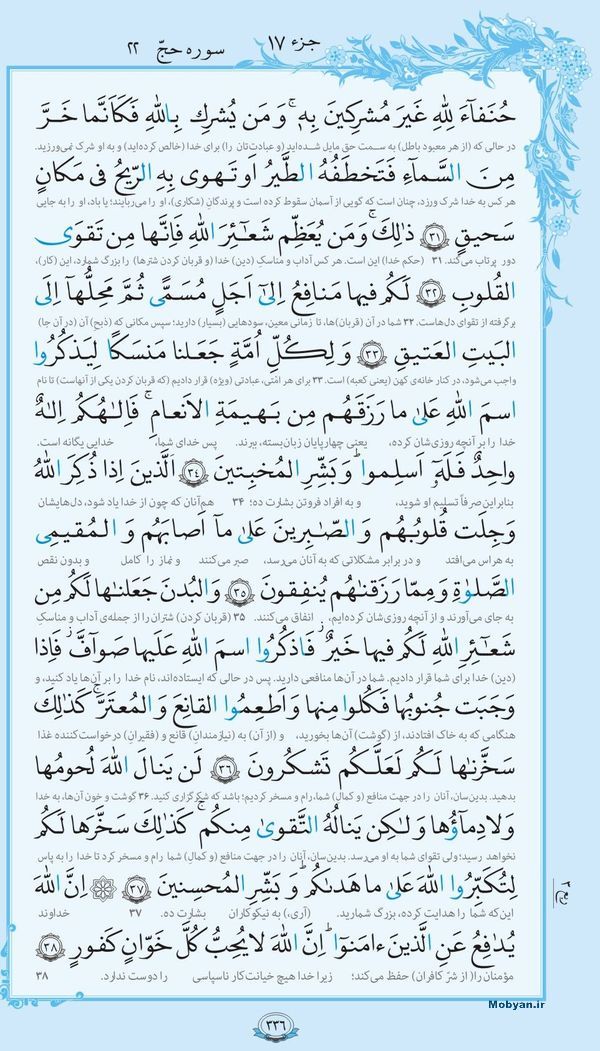 جزء ۱۷
سوره حجّ ۲۲
حُنَفآءَ لِلّٰهِ غَيرَ مُشرِكينَ بِهٖ ۚ وَ مَن يُشرِك بِاللّٰهِ فَكَاَنَّما خَرَّ
در حالی که (از هر معبود باطل) به سمت حق مایل شده‌اید و (عبادت‌تان را) برای خدا (خالص کرده‌اید) و به او شرک نمی‌ورزید.
مِنَ السَّمآءِ فَتَخطَفُهُ الطَّيرُ اَو تَهوى بِهِ الرّيحُ فى مَكانٍ
هر کس به خدا شرک ورزد، چنان است که گویی از آسمان سقوط کرده است و پرندگانِ (شکاری)، او را می‌ربایند؛ یا باد، او را به جایی
سَحيقٍ ﴿۳۱﴾ ذٰلِكَ ۚ وَ مَن يُعَظِّم شَعآئِرَ اللّٰهِ فَاِنَّها مِن تَقوَى
دور پرتاب می‌کند. ۳۱ (حکم خدا) این است. هر کس آداب و مناسکِ (دین) خدا (و قربان کردن شترها) را بزرگ شمارد، این (کار)،
القُلوبِ ﴿۳۲﴾ لَكُم فيها مَنافِعُ اِلىٰٓ اَجَلٍ مُسَمًّى ثُمَّ مَحِلُّهآ اِلَى
برگرفته از تقوای دل‌هاست. ۳۲ شما در آن (قربان)ها، تا زمانی معین، سودهایی (بسیار) دارید؛ سپس مکانی که (ذبحِ) آن (در آن جا)
البَيتِ العَتيقِ ﴿۳۳﴾ وَ لِكُلِّ اُمَّةٍ جَعَلنا مَنسَكًا لِيَذكُرُوا
واجب می‌شود، در کنار خانه‌ی کهن (یعنی کعبه) است. ۳۳ برای هر امّتی، عبادتی (ویژه) قرار دادیم (که قربان کردن یکی از آنهاست) تا نام
اسمَ اللّٰهِ عَلىٰ ما رَزَقَهُم مِن بَهيمَةِ الاَنعامِ ۗ فَاِلٰهُكُم اِلٰهٌ
خدا را بر آنچه روزی‌شان کرده، یعنی چهارپایان زبان‌بسته، ببرند. پس خدای شما، خدایی یگانه است.
واحِدٌ فَلَهٗٓ اَسلِموا ۗ وَ بَشِّرِ المُخبِتينَ ﴿۳۴﴾ اَلَّذينَ اِذا ذُكِرَ اللّٰهُ
بنابراین صرفاً تسلیم او شوید، و به افراد فروتن بشارت ده؛ ۳۴ هم‌آنان که چون از خدا یاد شود، دل‌هایشان
وَجِلَت قُلوبُهُم وَ الصّٰبِرينَ عَلىٰ مآ اَصابَهُم وَ المُقيمِى
به هراس می‌افتد و در برابر مشکلاتی که به آنان می‌رسد، صبر می‌کنند و نماز را کامل و بدون نقص
الصَّلوٰةِ وَ مِمّا رَزَقنٰهُم يُنفِقونَ ﴿۳۵﴾ وَ البُدنَ جَعَلنٰها لَكُم مِن
به جای می‌آورند و از آنچه روزی‌شان کرده‌ایم، انفاق می‌کنند. ۳۵ (قربان کردن) شتران را از جمله‌ی آداب و مناسکِ
شَعآئِرِ اللّٰهِ لَكُم فيها خَيرٌ ۖ فَاذكُرُوا اسمَ اللّٰهِ عَلَيها صَوآفَّ ۖ فَاِذا
(دین) خدا برای شما قرار دادیم. شما در آن‌ها منافعی دارید. پس در حالی که ایستاده‌اند، نام خدا را بر آن‌ها یاد کنید، و
وَجَبَت جُنوبُها فَكُلوا مِنها وَ اَطعِمُوا القانِعَ وَ المُعتَرَّ ۚ كَذٰلِكَ
هنگامی که به خاک افتادند، از (گوشت) آن‌ها بخورید، و (از آن) به (نیازمندانِ) قانع و (فقیرانِ) درخواست‌کننده غذا
سَخَّرنٰها لَكُم لَعَلَّكُم تَشكُرونَ ﴿۳۶﴾ لَن يَنالَ اللّٰهَ لُحومُها
بدهید. بدین‌سان، آنان را در جهت منافع (و کمال) شما، رام و مسخر کردیم؛ باشد که شکرگزاری کنید. ۳۶ گوشت و خون آن‌ها، به خدا
وَ لا دِمآؤُها وَ لٰكِن يَنالُهُ التَّقوىٰ مِنكُم ۚ كَذٰلِكَ سَخَّرَها لَكُم
نخواهد رسید؛ ولی تقوای شما به او می‌رسد. بدین‌سان، آنان را در جهت منافع (و کمالِ) شما رام و مسخر کرد تا خدا را به پاس
لِتُكَبِّرُوا اللّٰهَ عَلىٰ ما هَدىٰكُم ۗ وَ بَشِّرِ المُحسِنينَ ﴿۳۷﴾ اِنَّ اللّٰهَ
این‌که شما را هدایت کرده، بزرگ شمارید. (آری)، به نیکوکاران بشارت ده. ۳۷ خداوند
يُدافِعُ عَنِ الَّذينَ ءامَنوٓا ۗ اِنَّ اللّٰهَ لا يُحِبُّ كُلَّ خَوّانٍ كَفورٍ ﴿۳۸﴾
مؤمنان را (از شرّ کافران) حفظ می‌کند؛ زیرا خدا هیچ خیانت‌کار ناسپاسی را دوست ندارد. ۳۸
Mobyan.ir
۳۳۶